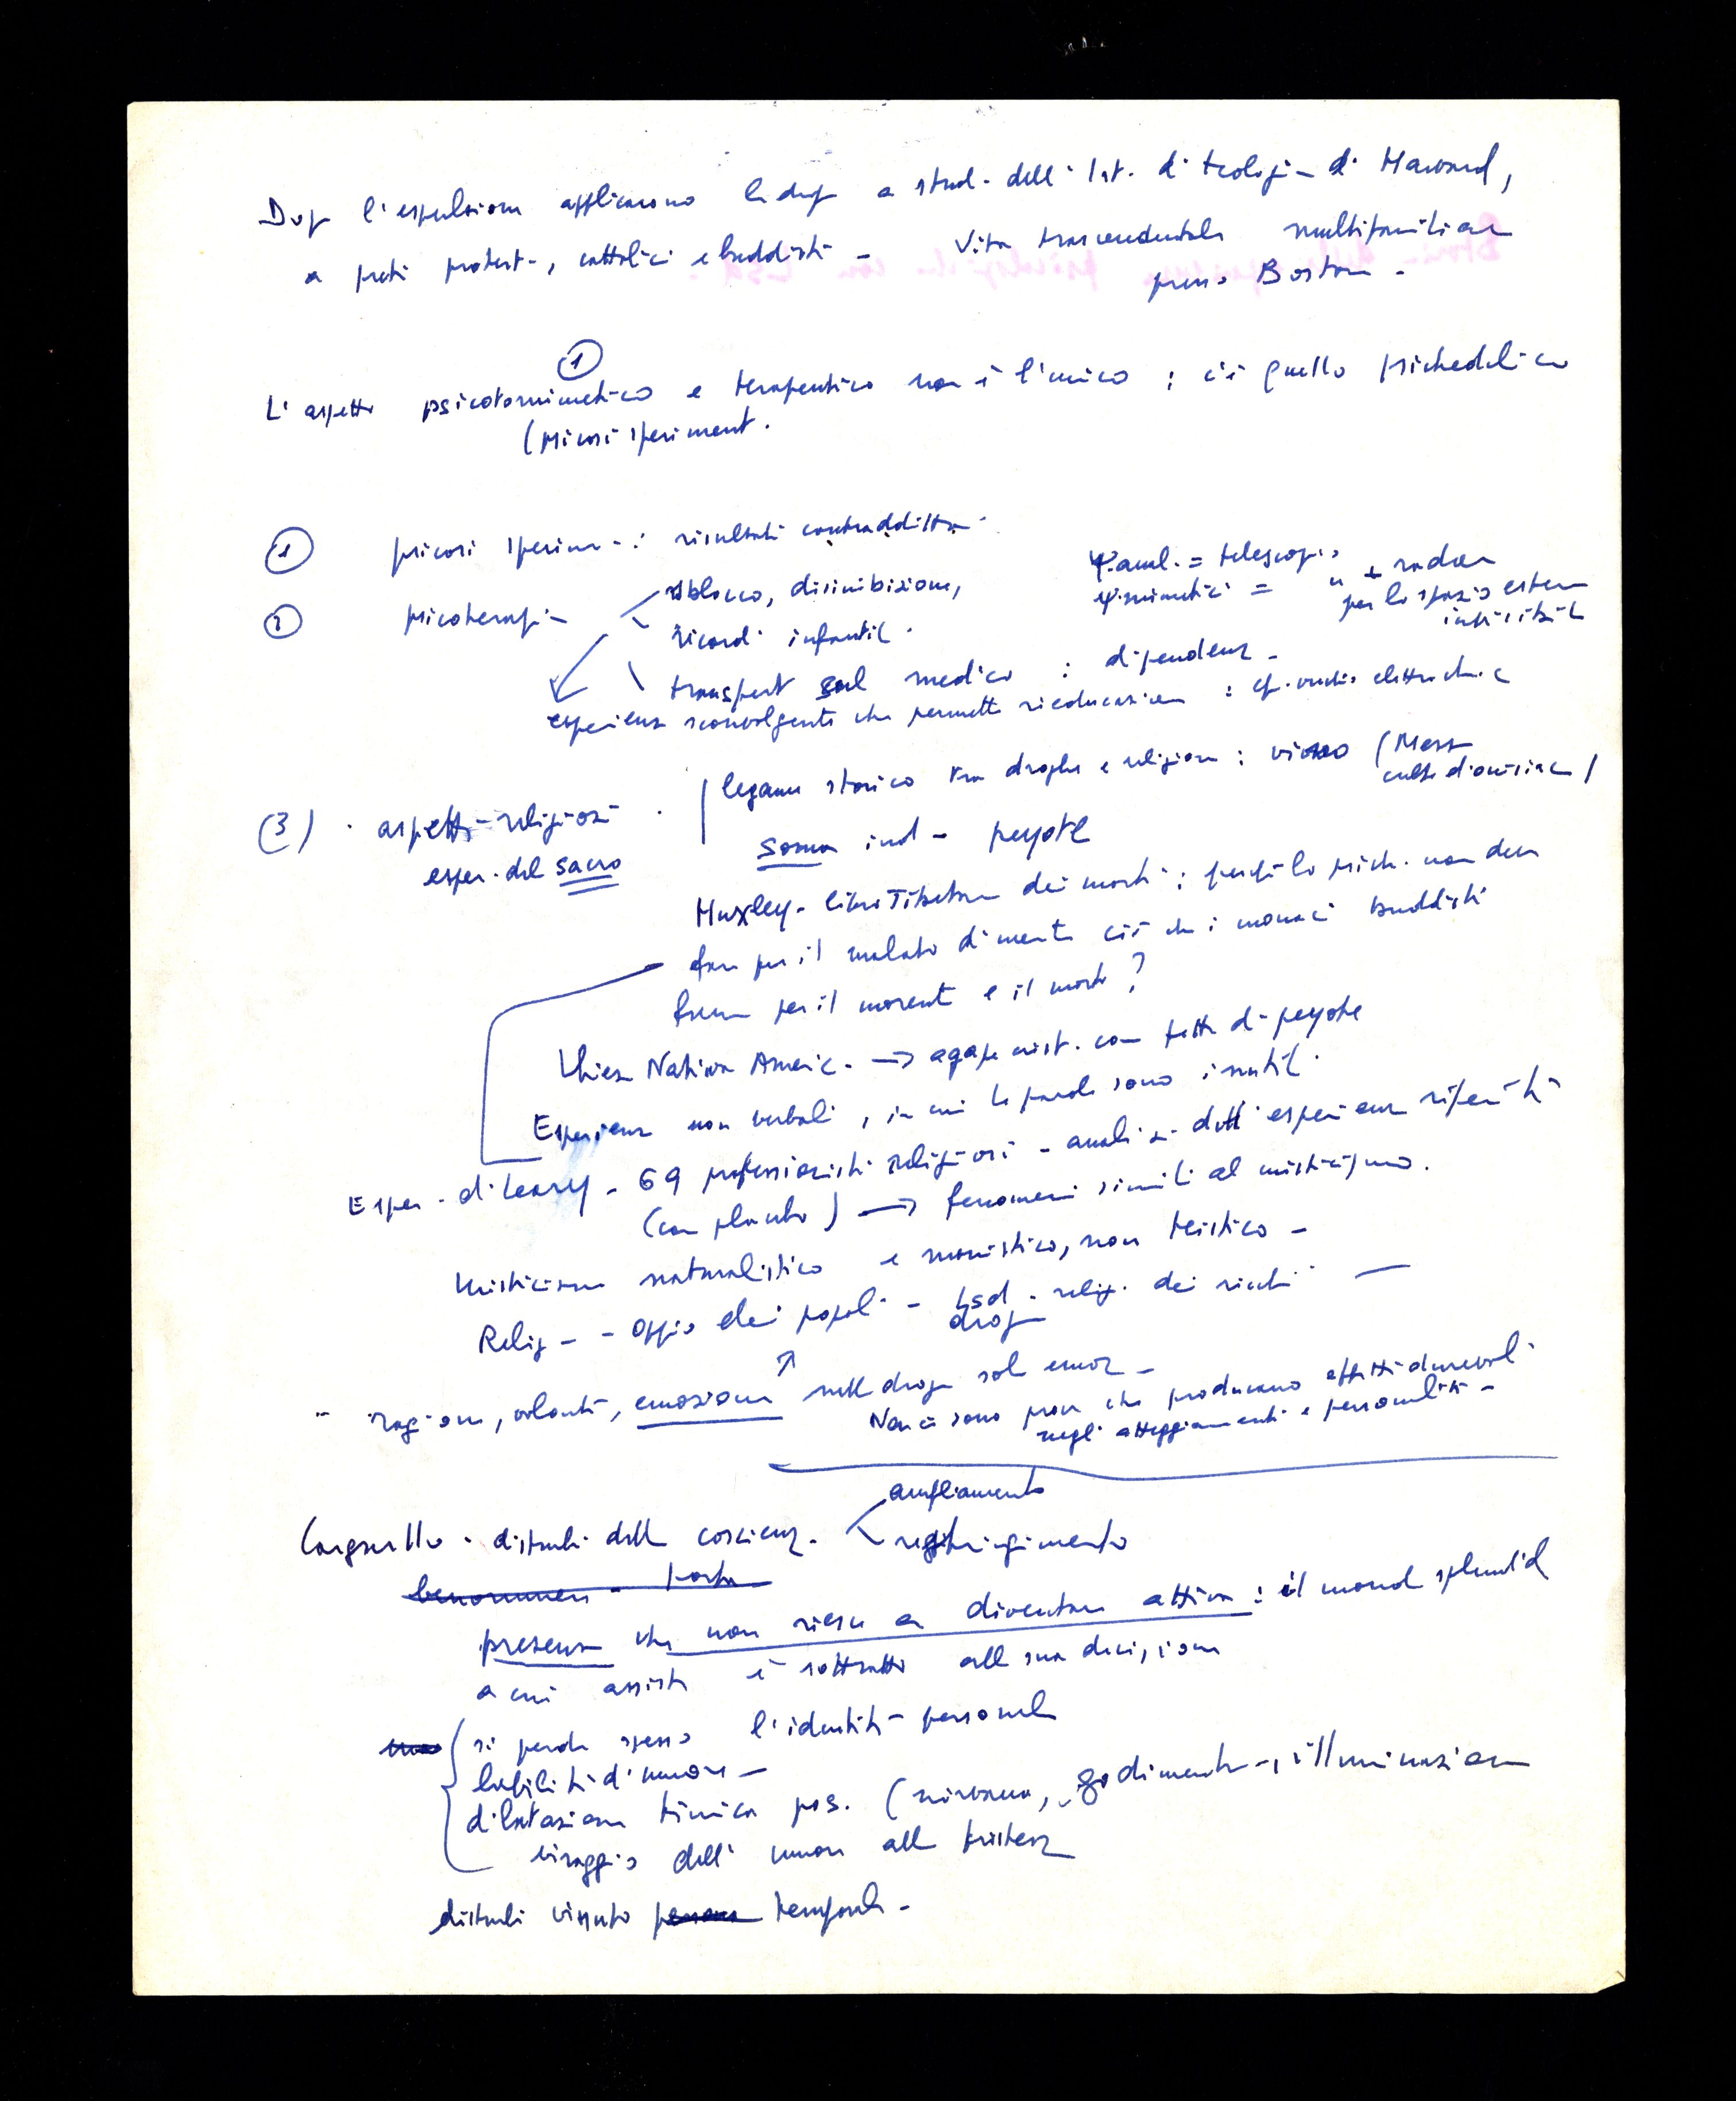 Dopo l'espulsione applicarono la droga a stud. dell'Ist. di teologia di Harward,
a preti protest., cattolici e buddisti - Vita trascendentale multifamiliare
presso Boston -
①
L'aspetto psicotomimetico e terapeutico non è l'unico : c'è quello psichedelico
(psicosi speriment.
① psicosi sperim. : risultati contraddittori
② psicoterapia
sblocco, disinibizione,
ricordi infantili.
transfert sul medico : dipendenza -
ψ.anal. = telescopio
ψ.mimetici = " + radar
per lo spazio esterno
invisibile
esperienza sconvolgente che permette rieducazione : elettrochoc
(3) . aspetti religiosi .
esper. del sacro
legame storico tra droghe e religione : vino (Messa
culti dionisiaci)
soma ind - peyote
Huxley - Libro Tibetano dei morti : perché lo psich. non deve
fare per il malato di mente ciò che i monaci buddisti
fanno per il morente e il morto ?
Chiesa Nativa Americ. → agape crist. con fette di peyote
Esperienze non verbali, in cui le parole sono inutili.
Esper. di Leary - 69 professionisti religiosi - analisi dell'esperienza riferita
(con placebo) → fenomeni simili al misticismo.
Misticismo naturalistico e monistico, non teistico -
Relig - - Oppio dei popoli - Lsd - relig. dei ricchi -
droga
" ragione, volontà, emozione nella droga solo emoz -
Non ci sono prove che producano effetti durevoli
negli atteggiamenti e personalità -
Cargnello - disturbi della coscienz.
ampliamento
restringimento
presenza che non riesce a diventare attiva : il mondo splendido
a cui assiste è sottratto alla sua decisione
si perde spesso l'identità personale
labilità d'umore -
dilatazione timica pos. (nirvana, godimento, illuminazione
viraggio dell'umore alla tristezza
disturbi vissuto temporale -